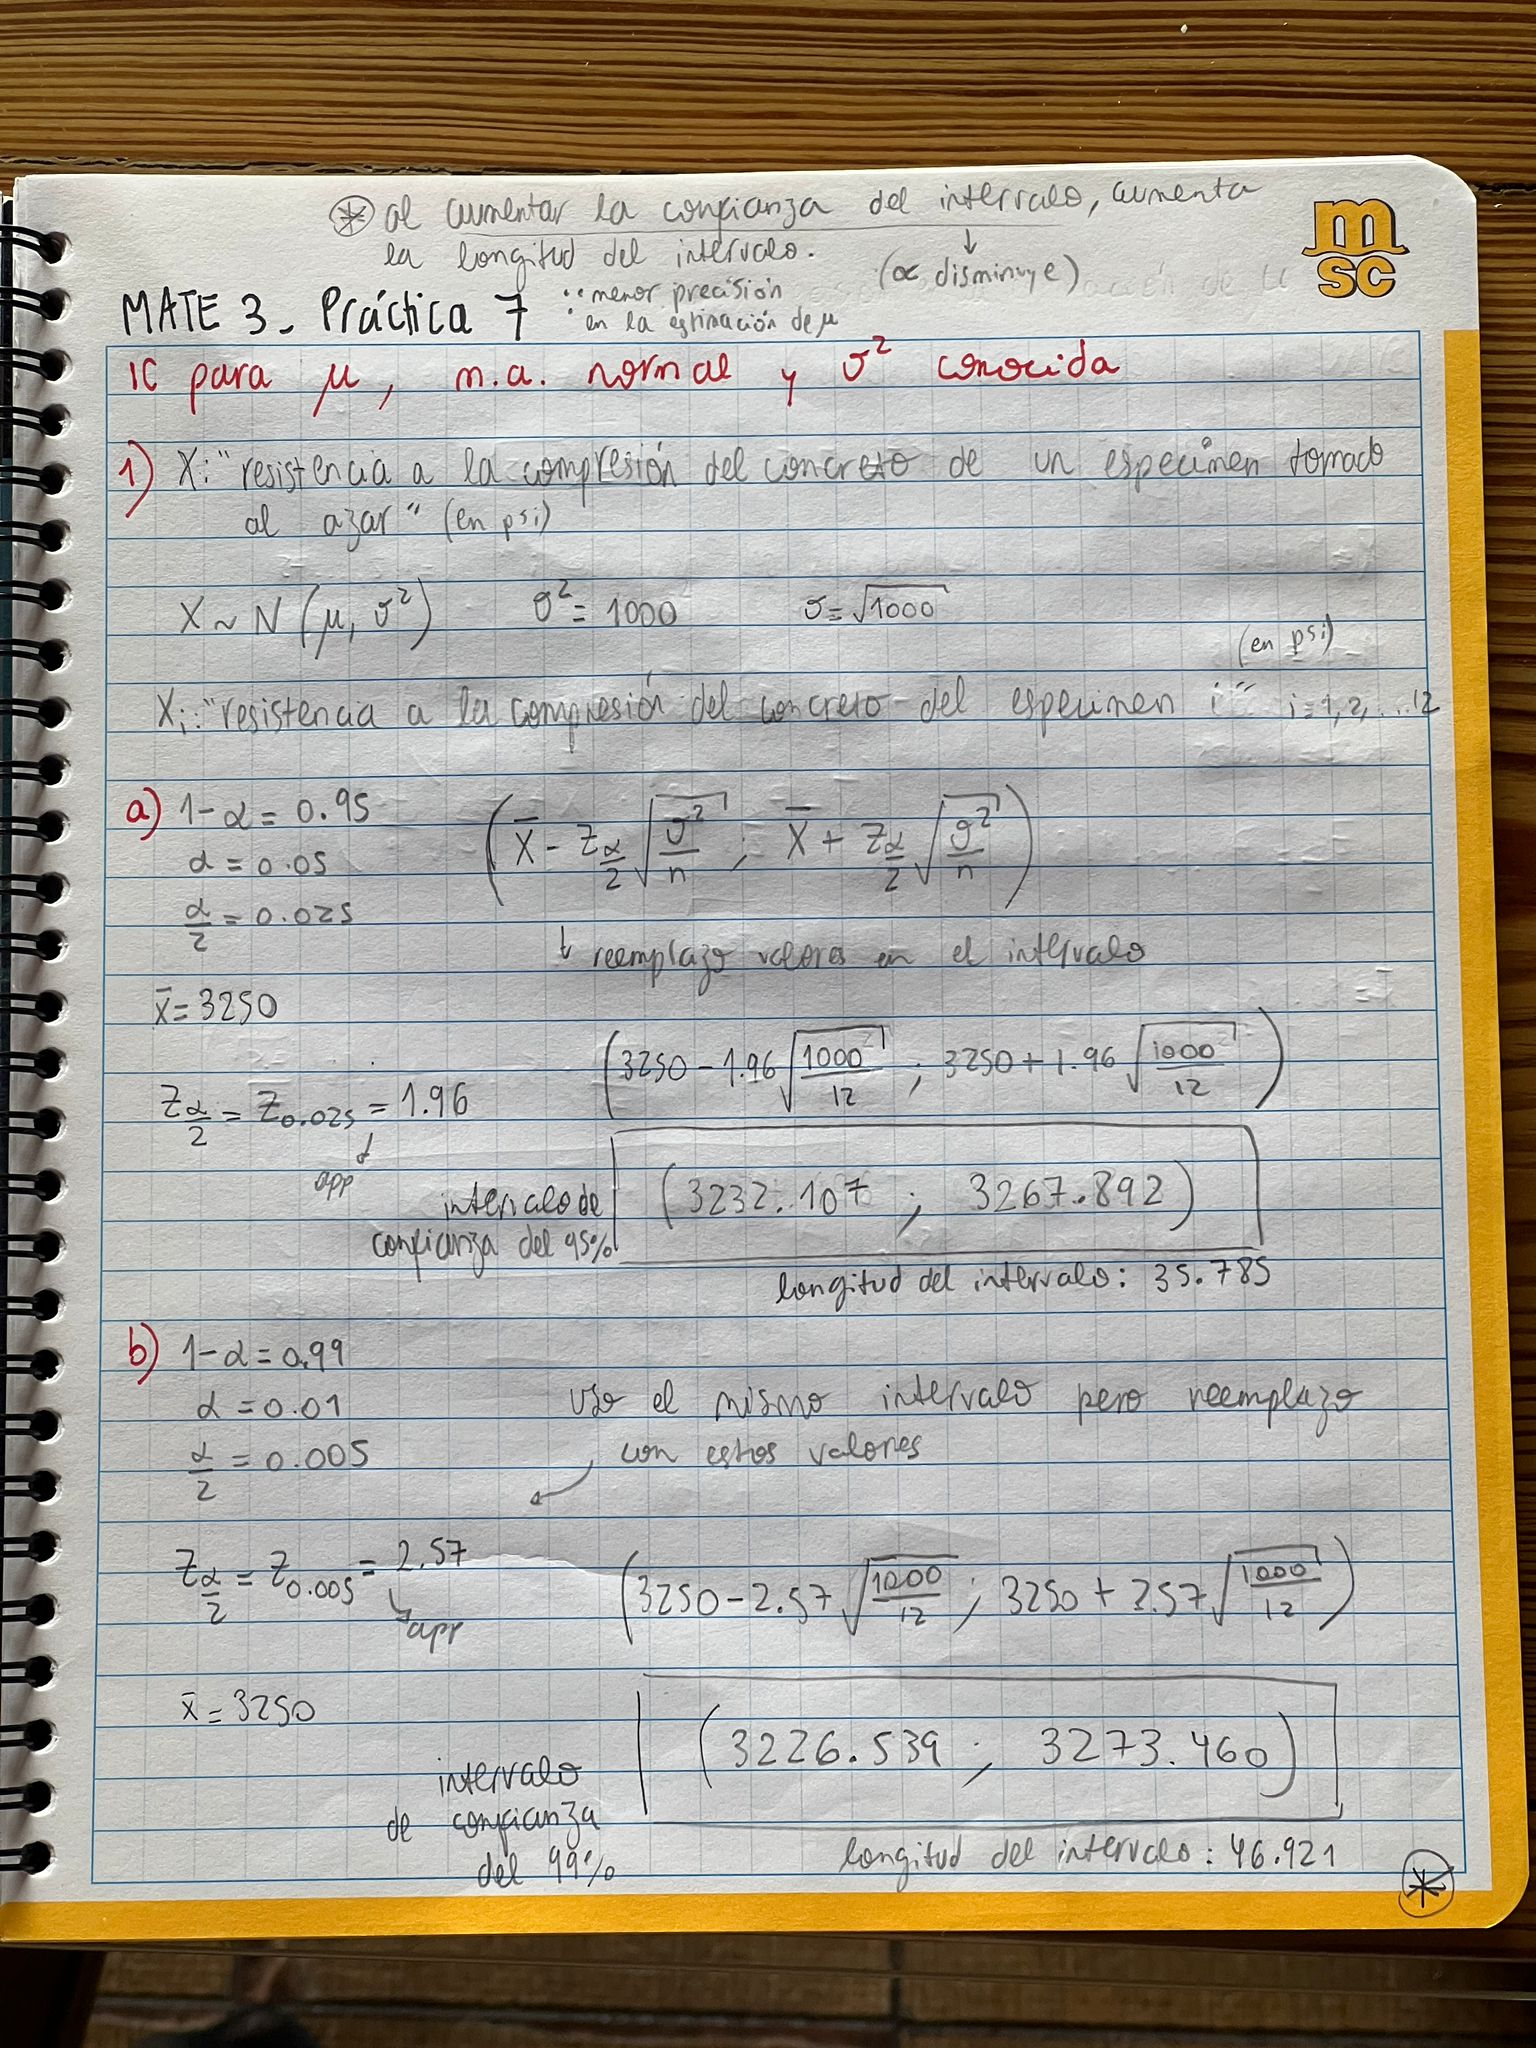 ⊛ al aumentar la confianza del intervalo, aumenta
la longitud del intervalo.
↓
(α disminuye)
∴ menor precisión
en la estimación de μ
msc
MATE 3 - Práctica 7
IC para μ, m.a. normal y σ² conocida
1) X: "resistencia a la compresión del concreto de un especimen tomado
al azar" (en psi)
X ~ N(μ, σ²) σ² = 1000 σ = √1000
(en psi)
Xi: "resistencia a la compresión del concreto del especimen i" i = 1, 2, ... 12
a) 1-α = 0.95
α = 0.05
α/2 = 0.025
(X̄ - Zα/2 √(σ²/n) ; X̄ + Zα/2 √(σ²/n))
↓ reemplazo valores en el intervalo
x̄ = 3250
(3250 - 1.96 √(1000/12) ; 3250 + 1.96 √(1000/12))
Zα/2 = Z0.025 = 1.96
↓
app
intervalo de
confianza del 95%
(3232.107 ; 3267.892)
longitud del intervalo: 35.785
b) 1-α = 0.99
α = 0.01
α/2 = 0.005
uso el mismo intervalo pero reemplazo
con estos valores
Zα/2 = Z0.005 = 2.57
↳ app
(3250 - 2.57 √(1000/12) ; 3250 + 2.57 √(1000/12))
x̄ = 3250
(3226.539 ; 3273.460)
intervalo
de confianza
del 99%
longitud del intervalo: 46.921
⊛